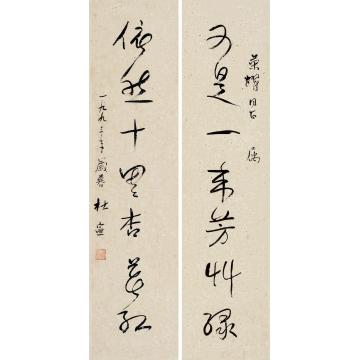 又是一年芳艸绿
荣耀同志属
依然十里杏花红
一九九三年岁暮 杜宣